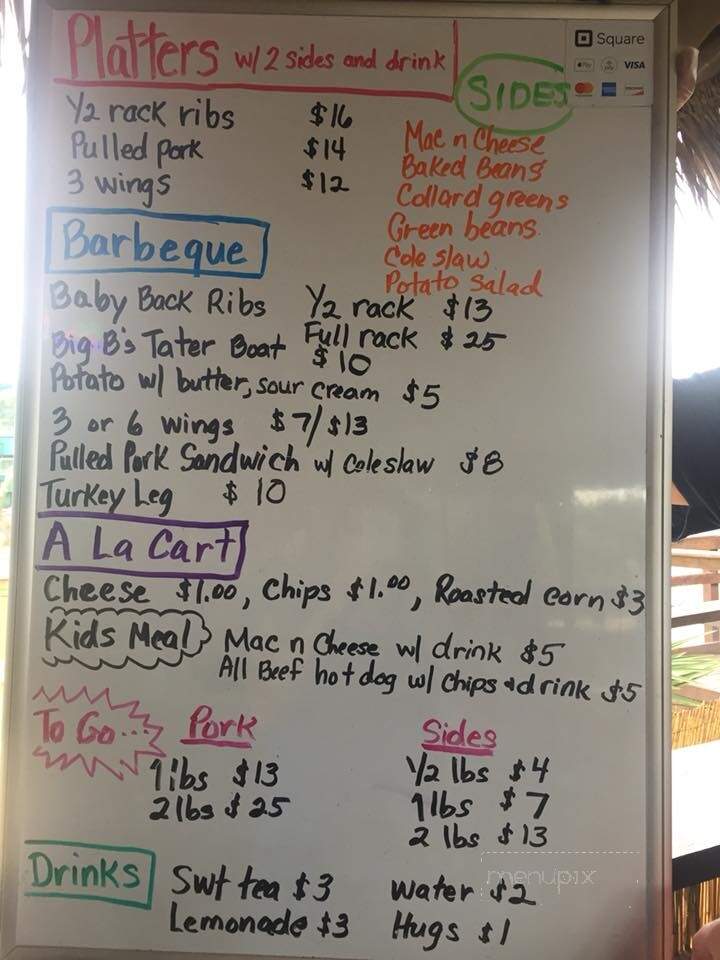 Platters w/2 sides and drink
Square
Pay
VISA
SIDES
1/2 rack ribs $16
Pulled pork $14
3 wings $12
Mac n Cheese
Baked Beans
Collard greens
Green beans
Cole slaw
Potato Salad
Barbeque
Baby Back Ribs 1/2 rack $13
Full rack $25
Big B's Tater Boat $10
Potato w/ butter, sour cream $5
3 or 6 wings $7/$13
Pulled Pork Sandwich w/ coleslaw $8
Turkey Leg $10
A La Cart
Cheese $1.00, Chips $1.00, Roasted corn $3
Kids Meal Mac n Cheese w/ drink $5
All Beef hot dog w/ chips + drink $5
To Go...
Pork
1 lbs $13
2 lbs $25
Sides
1/2 lbs $4
1 lbs $7
2 lbs $13
Drinks
Swt tea $3
Lemonade $3
Water $2
Hugs $1
menupix